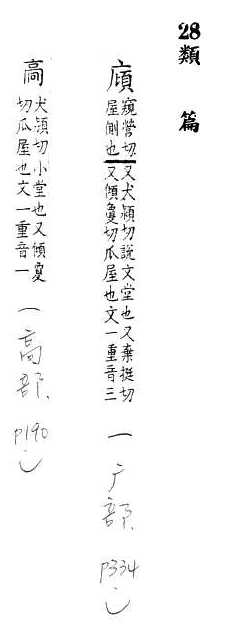 28類 篇
廎
窺營切
屋側也
又犬潁切說文堂也又棄挺切
又傾夐切瓜屋也文一重音三
一广部. p334
犬潁切小堂也又傾夐
切瓜屋也文一重音一
一高部. p190